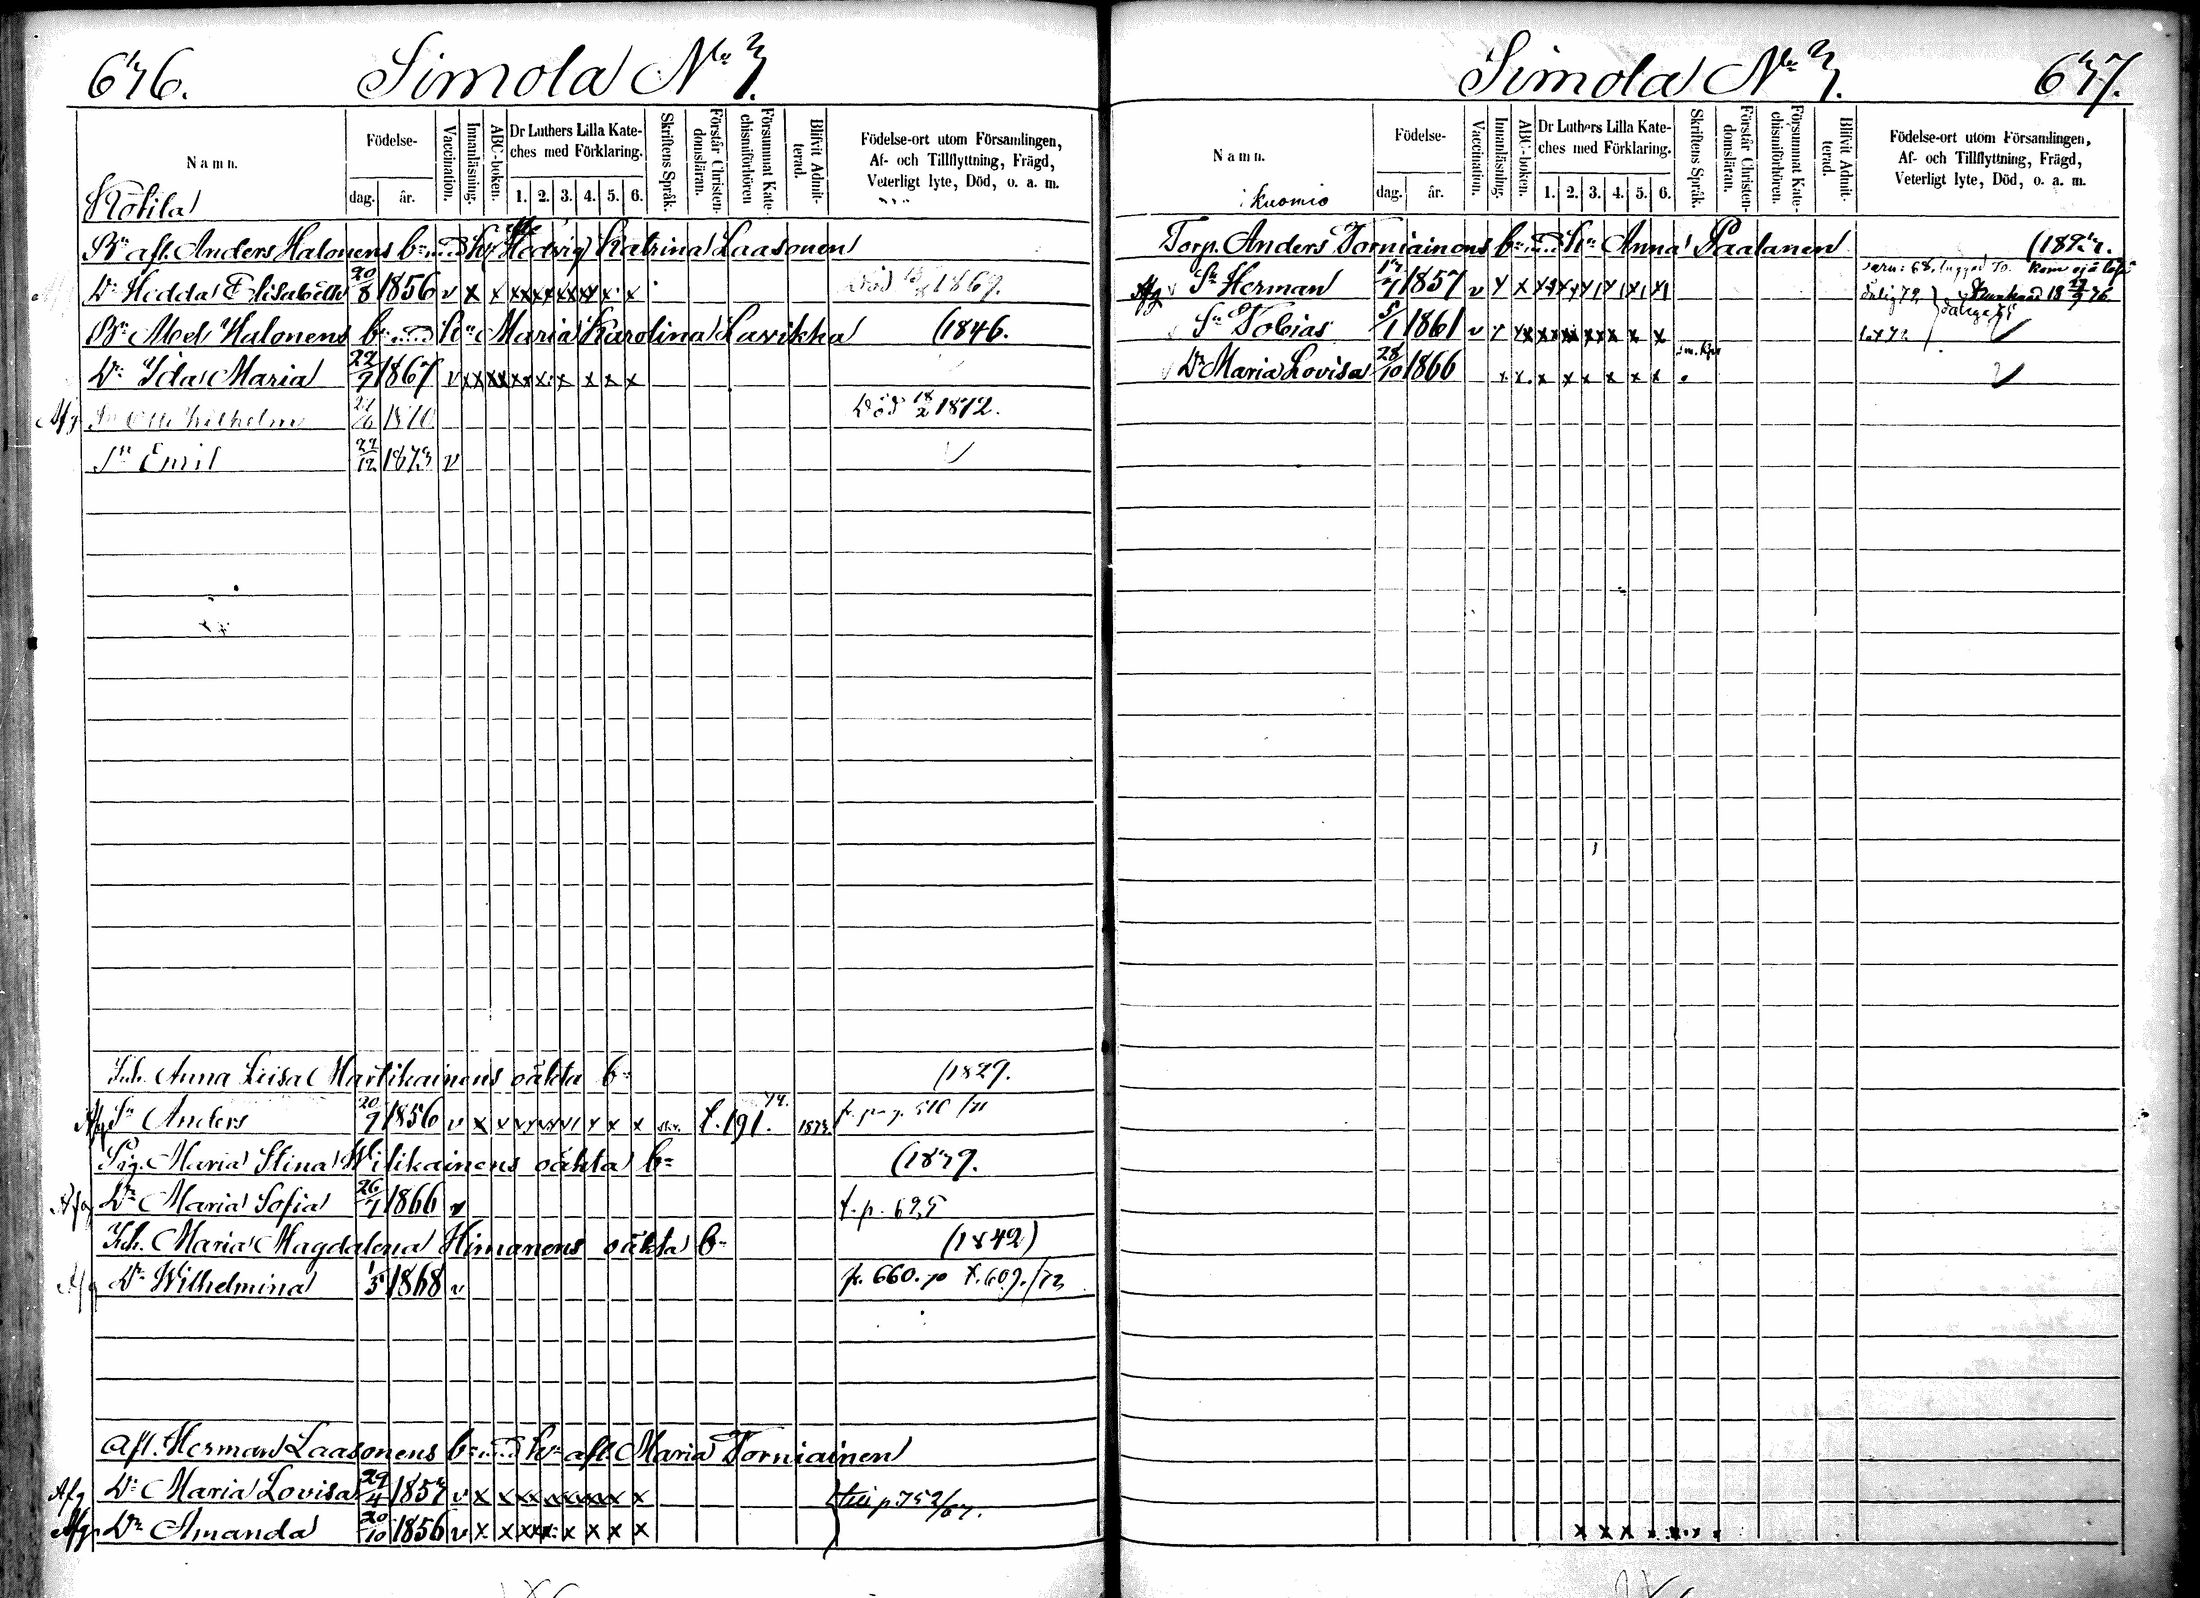 636. Simola No 3.
Namn. Födelse- dag. år. Vaccination. Innanläsning. ABC-boken. Dr Luthers Lilla Kateches med Förklaring. 1. 2. 3. 4. 5. 6. Skriftens Språk. Förstår Christendomsläran. Försummat Katechismiförhören Blifvit Admitterad. Födelse-ort utom Församlingen, Af- och Tillflyttning, Frägd, Veterligt lyte, Död, o. a. m.
Kotila
Bn afl. Anders Halonens bn med hu Hedvig Katrina Laasonen
Dr Hedda Elisabeth 20/8 1856 v x x x x x x x x x x Död 1869.
Bn Abel Halonens bn med hn Maria Karolina Lavikka (1846.
Dr Ida Maria 22/7 1867 v x x x x x x x x x x
Afg Sn Otto Wilhelm 1870 Död 18/2 1872.
Sn Emil 22/12 1873 v
Inh. Anna Leisa Martikainens oäkta bn (1829.
Afg Sn Anders 20/9 1856 v x x x x x x x x f. 191. 74. 1873. fr. pag. 510/71
Pig. Maria Stina Wilikainens oäkta bn (1839.
Afg Dr Maria Sofia 26/7 1866 v f. p. 695
Inh. Maria Magdalena Himanens oäkta bn (1842)
Afg Dr Wilhelmina 1/5 1868 v fr. 660. 70 f. 609./73
Afl. Herman Laasonens bn med hn afl. Maria Torniainen
Afg Dr Maria Lovisa 29/4 1853 v x x x x x x x x x till p 752/67.
Afg Dr Amanda 20/10 1856 v x x x x x x x x x
Simola No 3. 637.
Namn. Födelse- dag. år. Vaccination. Innanläsning. ABC-boken. Dr Luthers Lilla Kateches med Förklaring. 1. 2. 3. 4. 5. 6. Skriftens Språk. Förstår Christendomsläran. Försummat Katechismiförhören. Blifvit Admitterad. Födelse-ort utom Församlingen, Af- och Tillflyttning, Frägd, Veterligt lyte, Död, o. a. m.
kuomio
Torp. Anders Torniainens bn med hn Anna Paalanen (1823.
Afg Sn Herman 13/7 1857 v x x x x x x x x
Sn Tobias 5/1 1861 v x x x x x x x x
Dr Maria Lovisa 28/10 1866 x x x x x x x
x x x x x x x